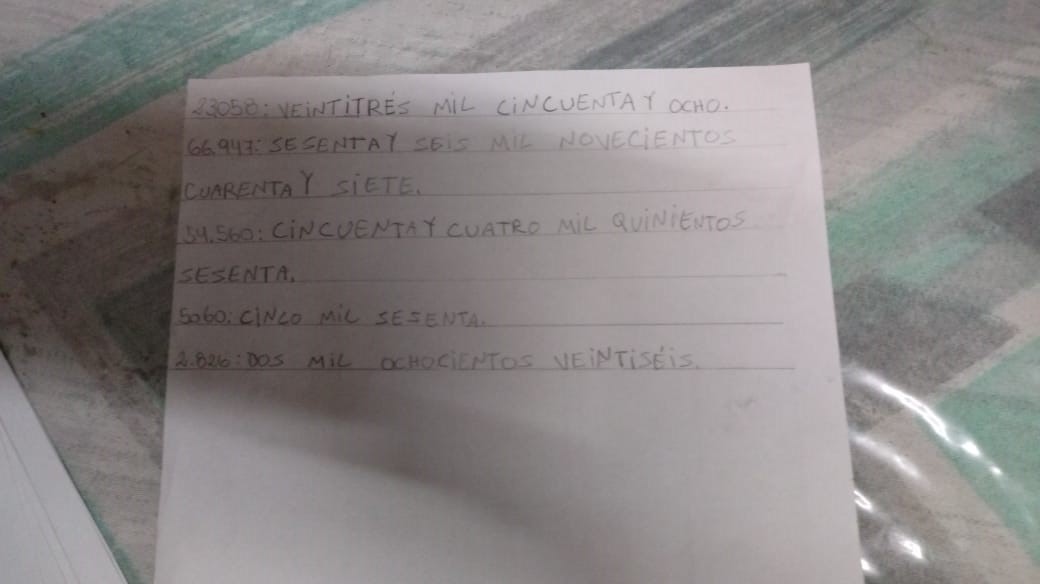 23058: VEINTITRÉS MIL CINCUENTA Y OCHO.
66.947: SESENTA Y SEIS MIL NOVECIENTOS
CUARENTA Y SIETE.
54.560: CINCUENTA Y CUATRO MIL QUINIENTOS
SESENTA.
5060: CINCO MIL SESENTA.
2.826: DOS MIL OCHOCIENTOS VEINTISÉIS.